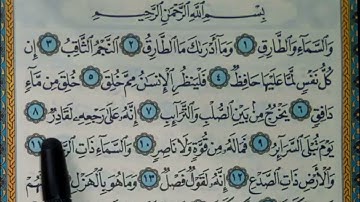 بِسْمِ اللَّهِ الرَّحْمَٰنِ الرَّحِيمِ
وَالسَّمَاءِ وَالطَّارِقِ ١ وَمَا أَدْرَاكَ مَا الطَّارِقُ ٢ النَّجْمُ الثَّاقِبُ ٣ إِن
كُلُّ نَفْسٍ لَّمَّا عَلَيْهَا حَافِظٌ ٤ فَلْيَنظُرِ الْإِنسَانُ مِمَّ خُلِقَ ٥ خُلِقَ مِن مَّاءٍ
دَافِقٍ ٦ يَخْرُجُ مِن بَيْنِ الصُّلْبِ وَالتَّرَائِبِ ٧ إِنَّهُ عَلَىٰ رَجْعِهِ لَقَادِرٌ ٨
يَوْمَ تُبْلَى السَّرَائِرُ ٩ فَمَا لَهُ مِن قُوَّةٍ وَلَا نَاصِرٍ ١٠ وَالسَّمَاءِ ذَاتِ ١١
وَالْأَرْضِ ذَاتِ الصَّدْعِ ١٢ إِنَّهُ لَقَوْلٌ فَصْلٌ ١٣ وَمَا هُوَ بِالْهَزْلِ